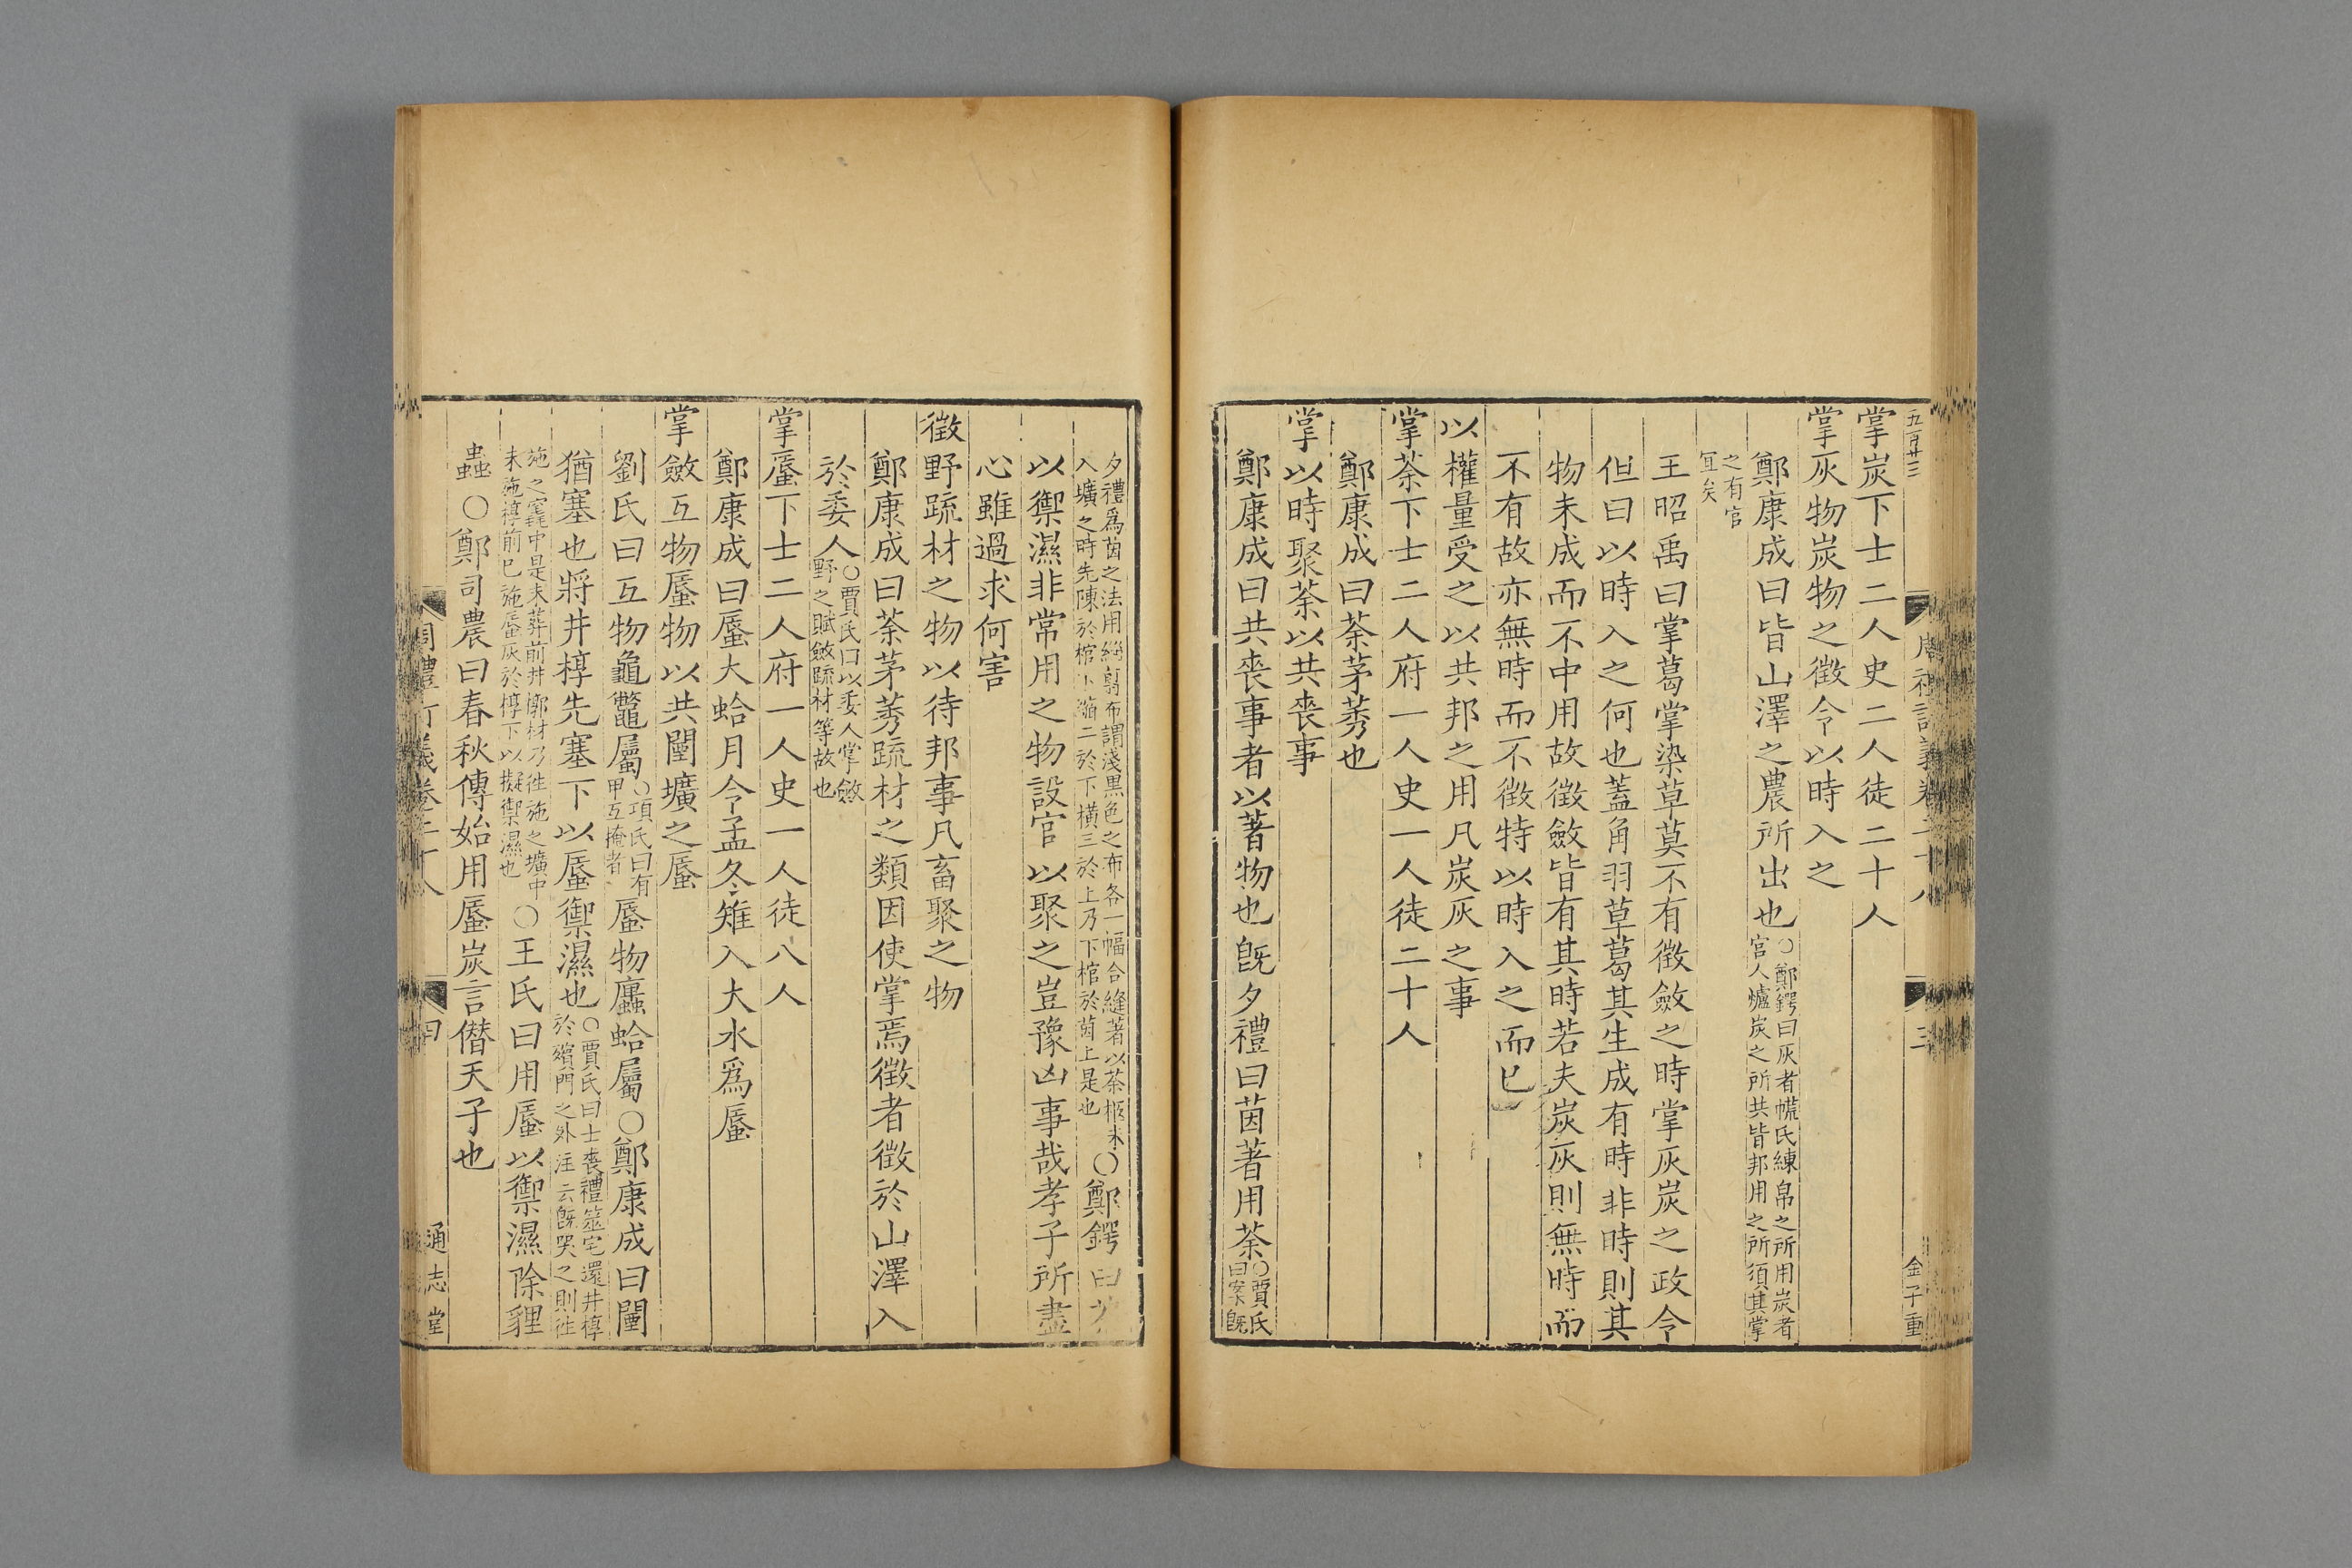 五百廿三
掌炭下士二人史二人徒二十人
掌灰物炭物之徵令以時入之
鄭康成曰皆山澤之農所出也○鄭鍔曰灰者㡛氏練帛之所用炭者
宮人爐炭之所共皆邦用之所須其掌
之有官
宜矣
王昭禹曰掌葛掌染草莫不有徵斂之時掌灰炭之政令
但曰以時入之何也蓋角羽草葛其生成有時非時則其
物未成而不中用故徵斂皆有其時若夫炭灰則無時而
不有故亦無時而不徵特以時入之而已
以權量受之以共邦之用凡炭灰之事
掌荼下士二人府一人史一人徒二十人
鄭康成曰荼茅莠也
掌以時聚荼以共喪事
鄭康成曰共喪事者以著物也旣夕禮曰茵著用荼○賈氏
曰案旣
金子重
夕禮爲茵之法用緇翦布謂淺黑色之布各一幅合縫著以荼柩未
入壙之時先陳於棺下縮二於下橫三於上乃下棺於茵上是也○鄭鍔曰
以禦濕非常用之物設官以聚之豈豫凶事哉孝子所盡
心雖過求何害
徵野疏材之物以待邦事凡畜聚之物
鄭康成曰荼茅莠疏材之類因使掌焉徵者徵於山澤入
於委人○賈氏曰以委人掌斂
野之賦斂疏材等故也
掌蜃下士二人府一人史一人徒八人
鄭康成曰蜃大蛤月令孟冬雉入大水爲蜃
掌斂互物蜃物以共闉壙之蜃
劉氏曰互物龜鼈屬○項氏曰有
甲互掩者蜃物廬蛤屬○鄭康成曰闉
猶塞也將井椁先塞下以蜃禦濕也○賈氏曰士喪禮筮宅還井椁
於殯門之外注云旣哭之則往
施之竁中是未葬前井槨材乃往施之壙中
未施椁前已施蜃灰於椁下以擬禦濕也○王氏曰用蜃以禦濕除貍
蟲○鄭司農曰春秋傳始用蜃炭言僭天子也
周禮訂義卷二十八
四
通志堂